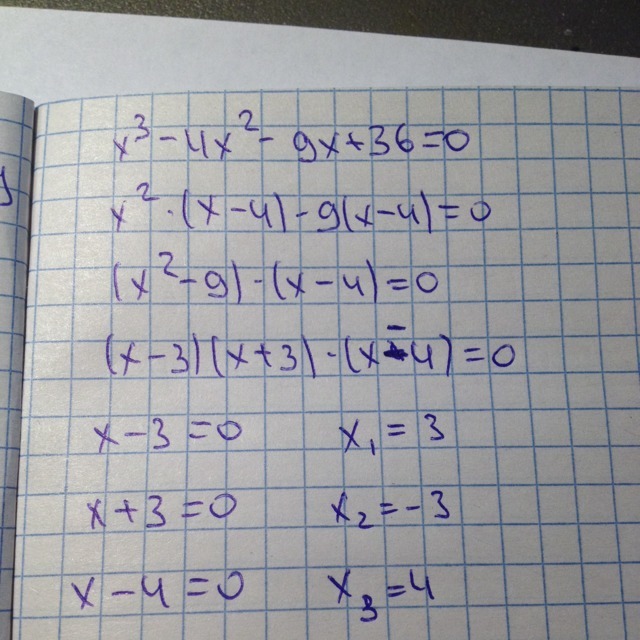 x³ - 4x² - 9x + 36 = 0
x² · (x - 4) - 9(x - 4) = 0
(x² - 9) · (x - 4) = 0
(x - 3)(x + 3) · (x - 4) = 0
x - 3 = 0 x₁ = 3
x + 3 = 0 x₂ = -3
x - 4 = 0 x₃ = 4